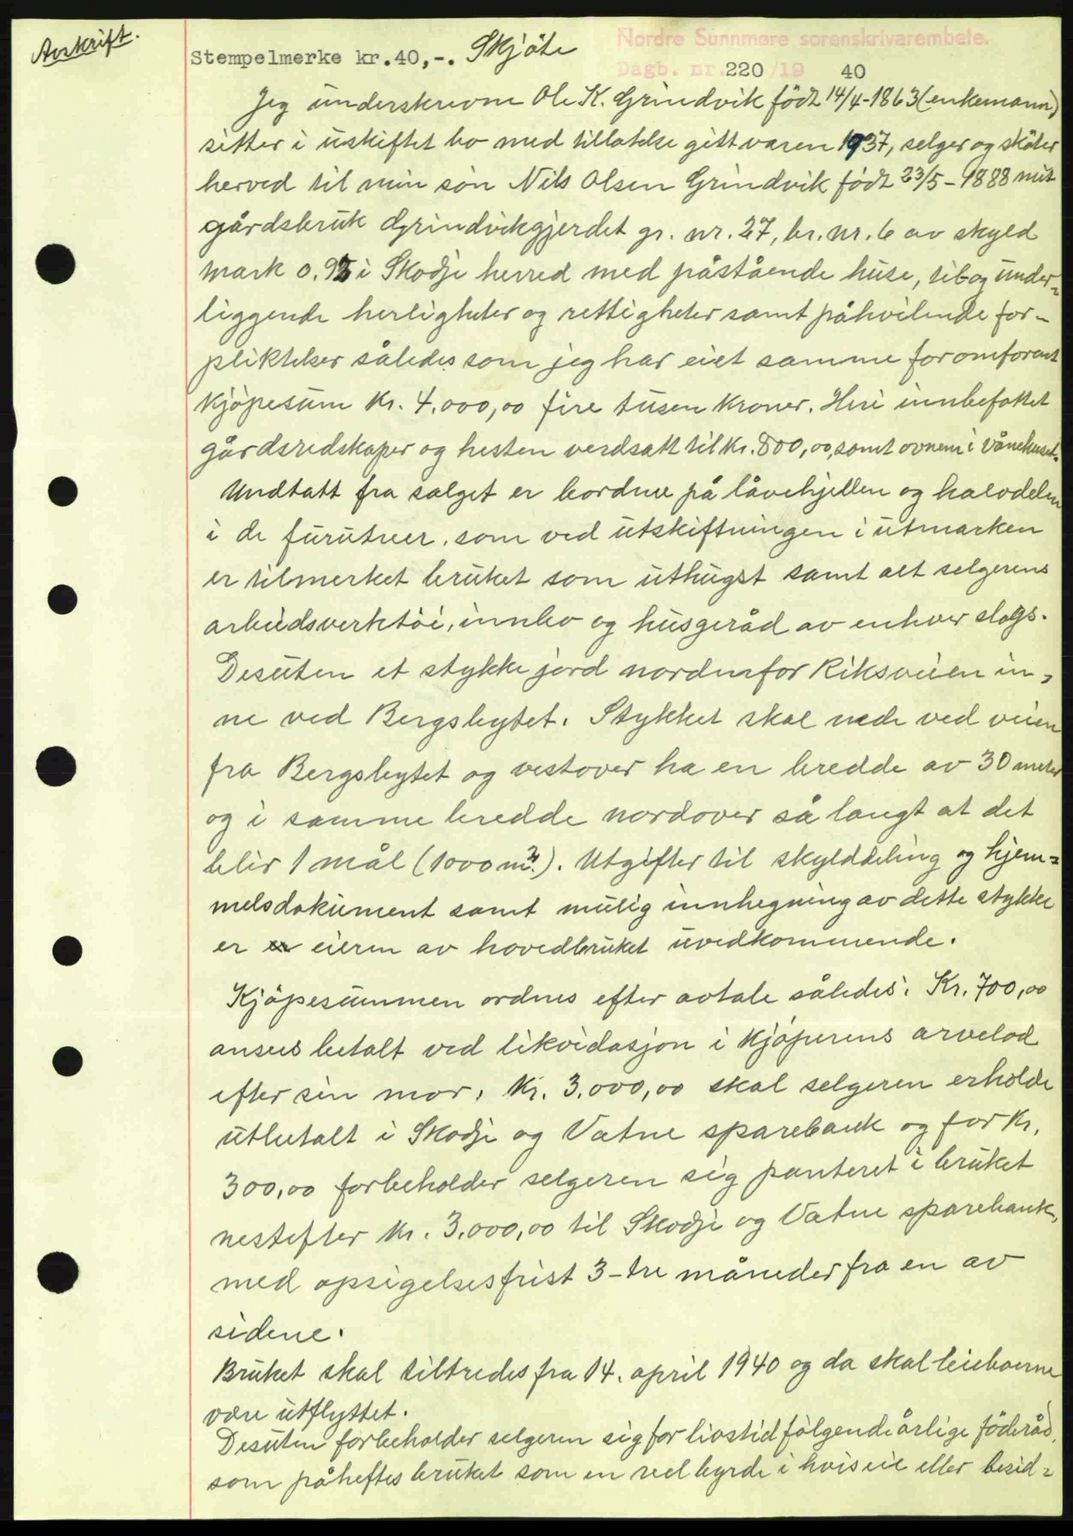 Avskrift.
Nordre Sunnmøre sorenskrivarembete.
Stempelmerke kr.40,-. Skjöte
Dagb. nr. 220/19 40
Jeg underskrevne Ole K. Grindvik födt 14/4-1863 (enkemann)
sitter i uskiftet bo med tillatelse gitt våren 1937, selger og sköter
herved til min sön Nils Olsen Grindvik födt 23/5-1888 mit
gårdsbruk Grindvikgjerdet gr. nr. 27, br. nr. 6 av skyld
mark 0.95 i Skodje herred med påstående huse, til og under-
liggende herligheter og rettigheter samt påhvilende for-
pliktelser således som jeg har eiet samme for omforent
kjöpesum Kr. 4.000,00 fire tusen kroner. Heri innbefattet
gårdsredskaper og hesten verdsatt til Kr. 800,00, samt ovnene i vånehuset.
Undtatt fra salget er bordene på låvehjellen og halvdelen
i de furutreer, som ved utskiftningen i utmarken
er tilmerket bruket som uthugst samt alt selgerens
arbeidsverktöi, innbo og husgeråd av enhver slags.
Desuten et stykke jord nordenfor Riksveien in-
ne ved Bergsbytet. Stykket skal nede ved veien
fra Bergsbytet og vestover ha en bredde av 30 meter
og i samme bredde nordover så langt at det
blir 1 mål (1000 m²). Utgifter til skylddeling og hjem-
melsdokument samt mulig innhegning av dette stykke
er eieren av hovedbruket uvedkommende.
Kjöpesummen ordnes efter avtale således: Kr. 700,00
ansees betalt ved likvidasjon i kjöperens arvelod
efter sin mor, Kr. 3.000,00 skal selgeren erholde
utbetalt i Skodje og Vatne sparebank og for Kr.
300,00 forbeholder selgeren sig panteret i bruket
nestefter Kr. 3.000,00 til Skodje og Vatne sparebank,
med opsigelsesfrist 3-tre måneder fra en av
sidene.
Bruket skal tiltredes fra 14. april 1940 og da skal leieboerne
være utflyttet.
Desuten forbeholder selgeren sig for livstid fölgende årlige föderåd,
som påheftes bruket som en reel byrde i hvis eie eller besid-